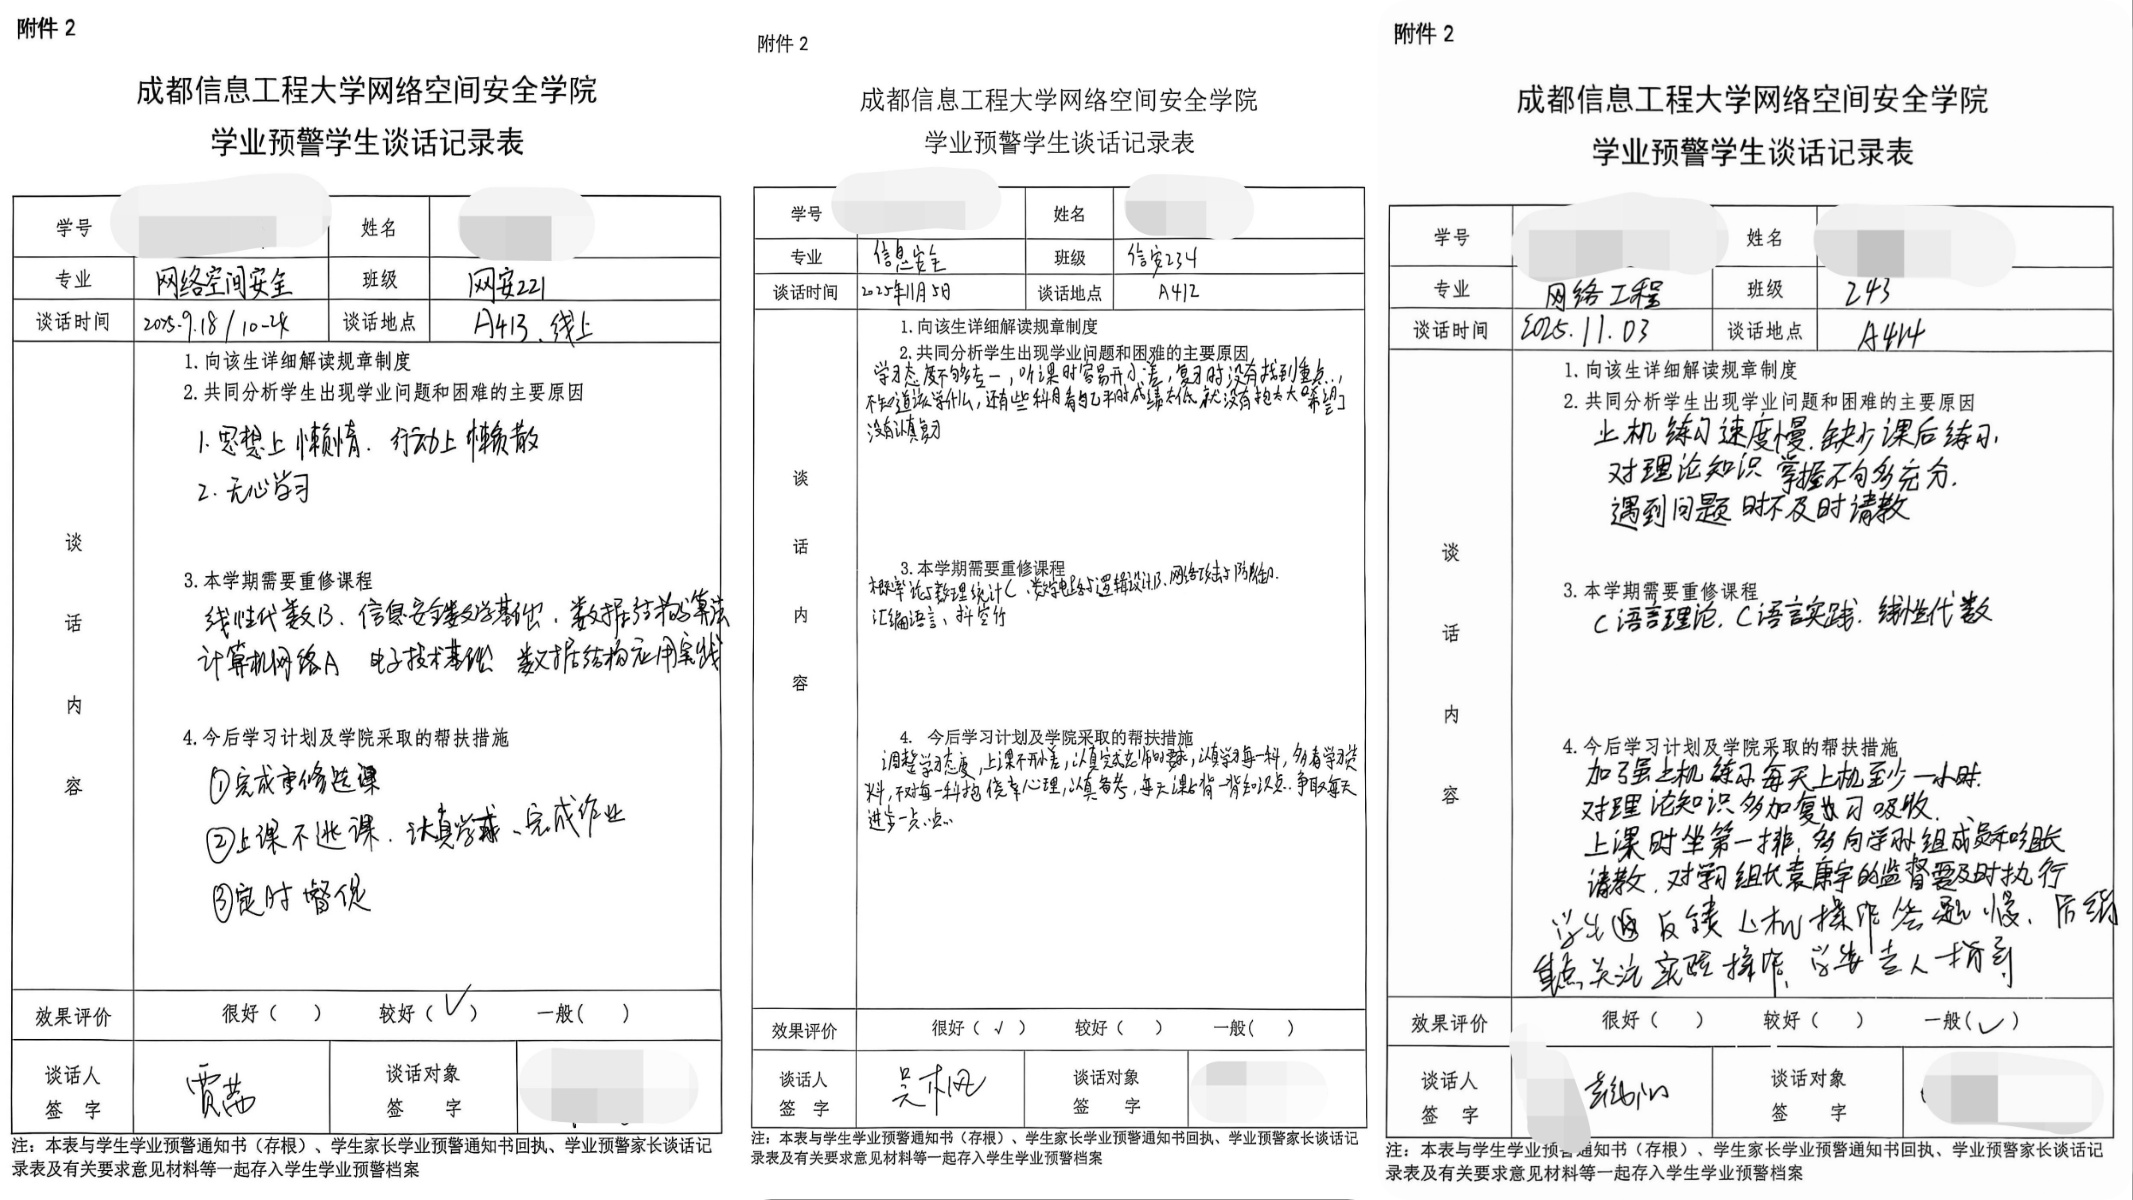 附件 2
成都信息工程大学网络空间安全学院
学业预警学生谈话记录表
学号 姓名
专业 网络空间安全 班级 网安221
谈话时间 2025.9.18/10-24 谈话地点 A413、线上
谈话内容
1.向该生详细解读规章制度
2.共同分析学生出现学业问题和困难的主要原因
1.思想上懒惰.行动上懒散
2.无心学习
3.本学期需要重修课程
线性代数B.信息安全数学基础.数据结构与算法
计算机网络A 电子技术基础 数据结构应用实践
4.今后学习计划及学院采取的帮扶措施
①完成重修选课
②上课不逃课.认真学、完成作业
③定时督促
效果评价 很好( ) 较好(√) 一般( )
谈话人签字 贾茜 谈话对象签字
注:本表与学生学业预警通知书(存根)、学生家长学业预警通知书回执、学业预警家长谈话记
录表及有关要求意见材料等一起存入学生学业预警档案
附件 2
成都信息工程大学网络空间安全学院
学业预警学生谈话记录表
学号 姓名
专业 信息安全 班级 信安234
谈话时间 2025年11月5日 谈话地点 A412
谈话内容
1.向该生详细解读规章制度
2.共同分析学生出现学业问题和困难的主要原因
学习态度不够专一,听课时容易开小差,复习时没有找到重点,
不知道该学什么,还有些科目看自己平时成绩太低就没有抱太大希望
没有认真复习
3.本学期需要重修课程
概率论与数理统计C、数字电路与逻辑设计B、网络攻击与防御.
汇编语言、
4. 今后学习计划及学院采取的帮扶措施
调整学习态度,上课不开小差,认真完成老师的要求,认真学习每一科,多看学习资
料,不对每一科抱侥幸心理,认真备考,每天课上背一背知识点.争取每天
进步一点点..
效果评价 很好(√) 较好( ) 一般( )
谈话人签字 吴枫 谈话对象签字
注:本表与学生学业预警通知书(存根)、学生家长学业预警通知书回执、学业预警家长谈话记
录表及有关要求意见材料等一起存入学生学业预警档案
附件 2
成都信息工程大学网络空间安全学院
学业预警学生谈话记录表
学号 姓名
专业 网络工程 班级 243
谈话时间 2025.11.03 谈话地点 A414
谈话内容
1.向该生详细解读规章制度
2.共同分析学生出现学业问题和困难的主要原因
上机练习速度慢.缺少课后练习.
对理论知识掌握不够多充分.
遇到问题时不及时请教
3.本学期需要重修课程
C语言理论.C语言实践.线性代数
4.今后学习计划及学院采取的帮扶措施
加强上机练习每天上机至少一小时.
对理论知识多加复习吸收.
上课时坐第一排.多向学习小组成员和组长
请教.对学习组长袁康宇的监督要及时执行
学生反馈上机操作答题慢.后续
重点关注实践操作.学委专人指导
效果评价 很好( ) 较好( ) 一般(√)
谈话人签字 谈话对象签字
注:本表与学生学业预警通知书(存根)、学生家长学业预警通知书回执、学业预警家长谈话记
录表及有关要求意见材料等一起存入学生学业预警档案